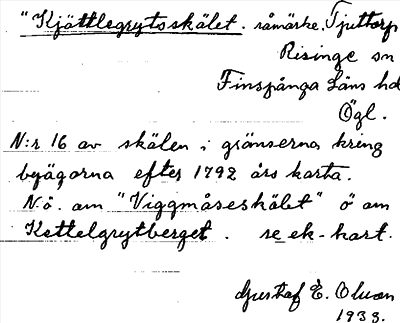 "Kjättlegrytsskälet. råmärke. Tjuttorp
Risinge sn
Finspånga Läns hd
Ögl.
N:r 16 av skälen i gränserna kring
byägorna efter 1792 års karta.
N.ö. om "Viggmåseskälet" ö om
Kettelgrytberget. se ek-kart.
Gustaf E. Olson
1933.